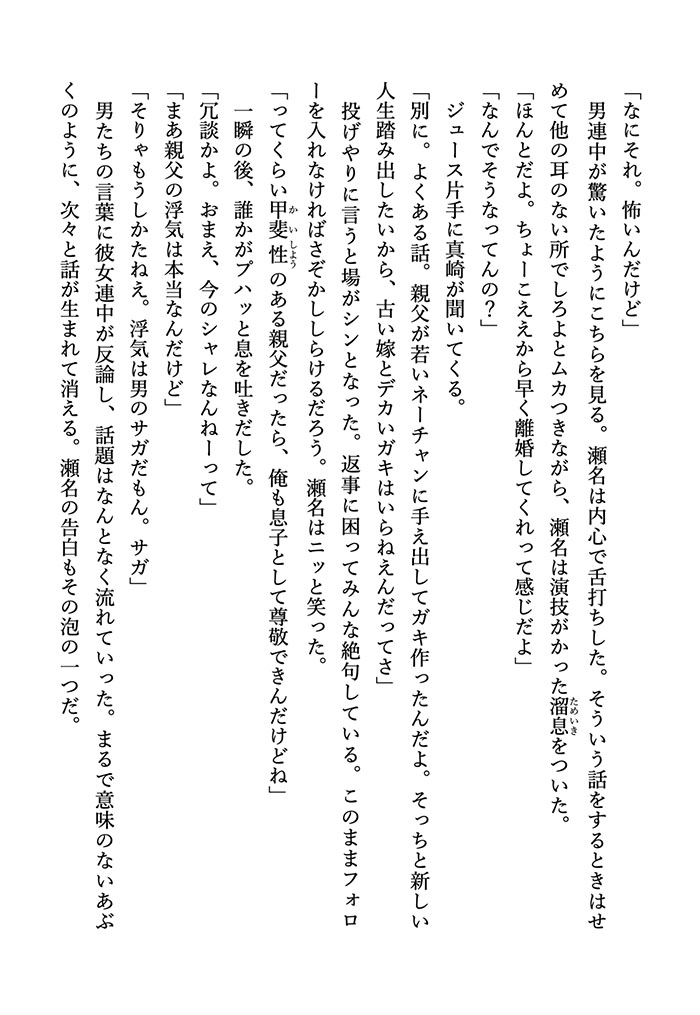 「なにそれ。怖いんだけど」
男連中が驚いたようにこちらを見る。瀬名は内心で舌打ちした。そういう話をするときはせ
めて他の耳のない所でしろよとムカつきながら、瀬名は演技がかった溜息をついた。
「ほんとだよ。ちょーこええから早く離婚してくれって感じだよ」
「なんでそうなってんの？」
ジュース片手に真崎が聞いてくる。
「別に。よくある話。親父が若いネーチャンに手え出してガキ作ったんだよ。そっちと新しい
人生踏み出したいから、古い嫁とデカいガキはいらねえんだってさ」
投げやりに言うと場がシンとなった。返事に困ってみんな絶句している。このままフォロ
ーを入れなければさぞかししらけるだろう。瀬名はニッと笑った。
「ってくらい甲斐性のある親父だったら、俺も息子として尊敬できんだけどね」
一瞬の後、誰かがプハッと息を吐きだした。
「冗談かよ。おまえ、今のシャレなんねーって」
「まあ親父の浮気は本当なんだけど」
「そりゃもうしかたねえ。浮気は男のサガだもん。サガ」
男たちの言葉に彼女連中が反論し、話題はなんとなく流れていった。まるで意味のないあぶ
くのように、次々と話が生まれて消える。瀬名の告白もその泡の一つだ。